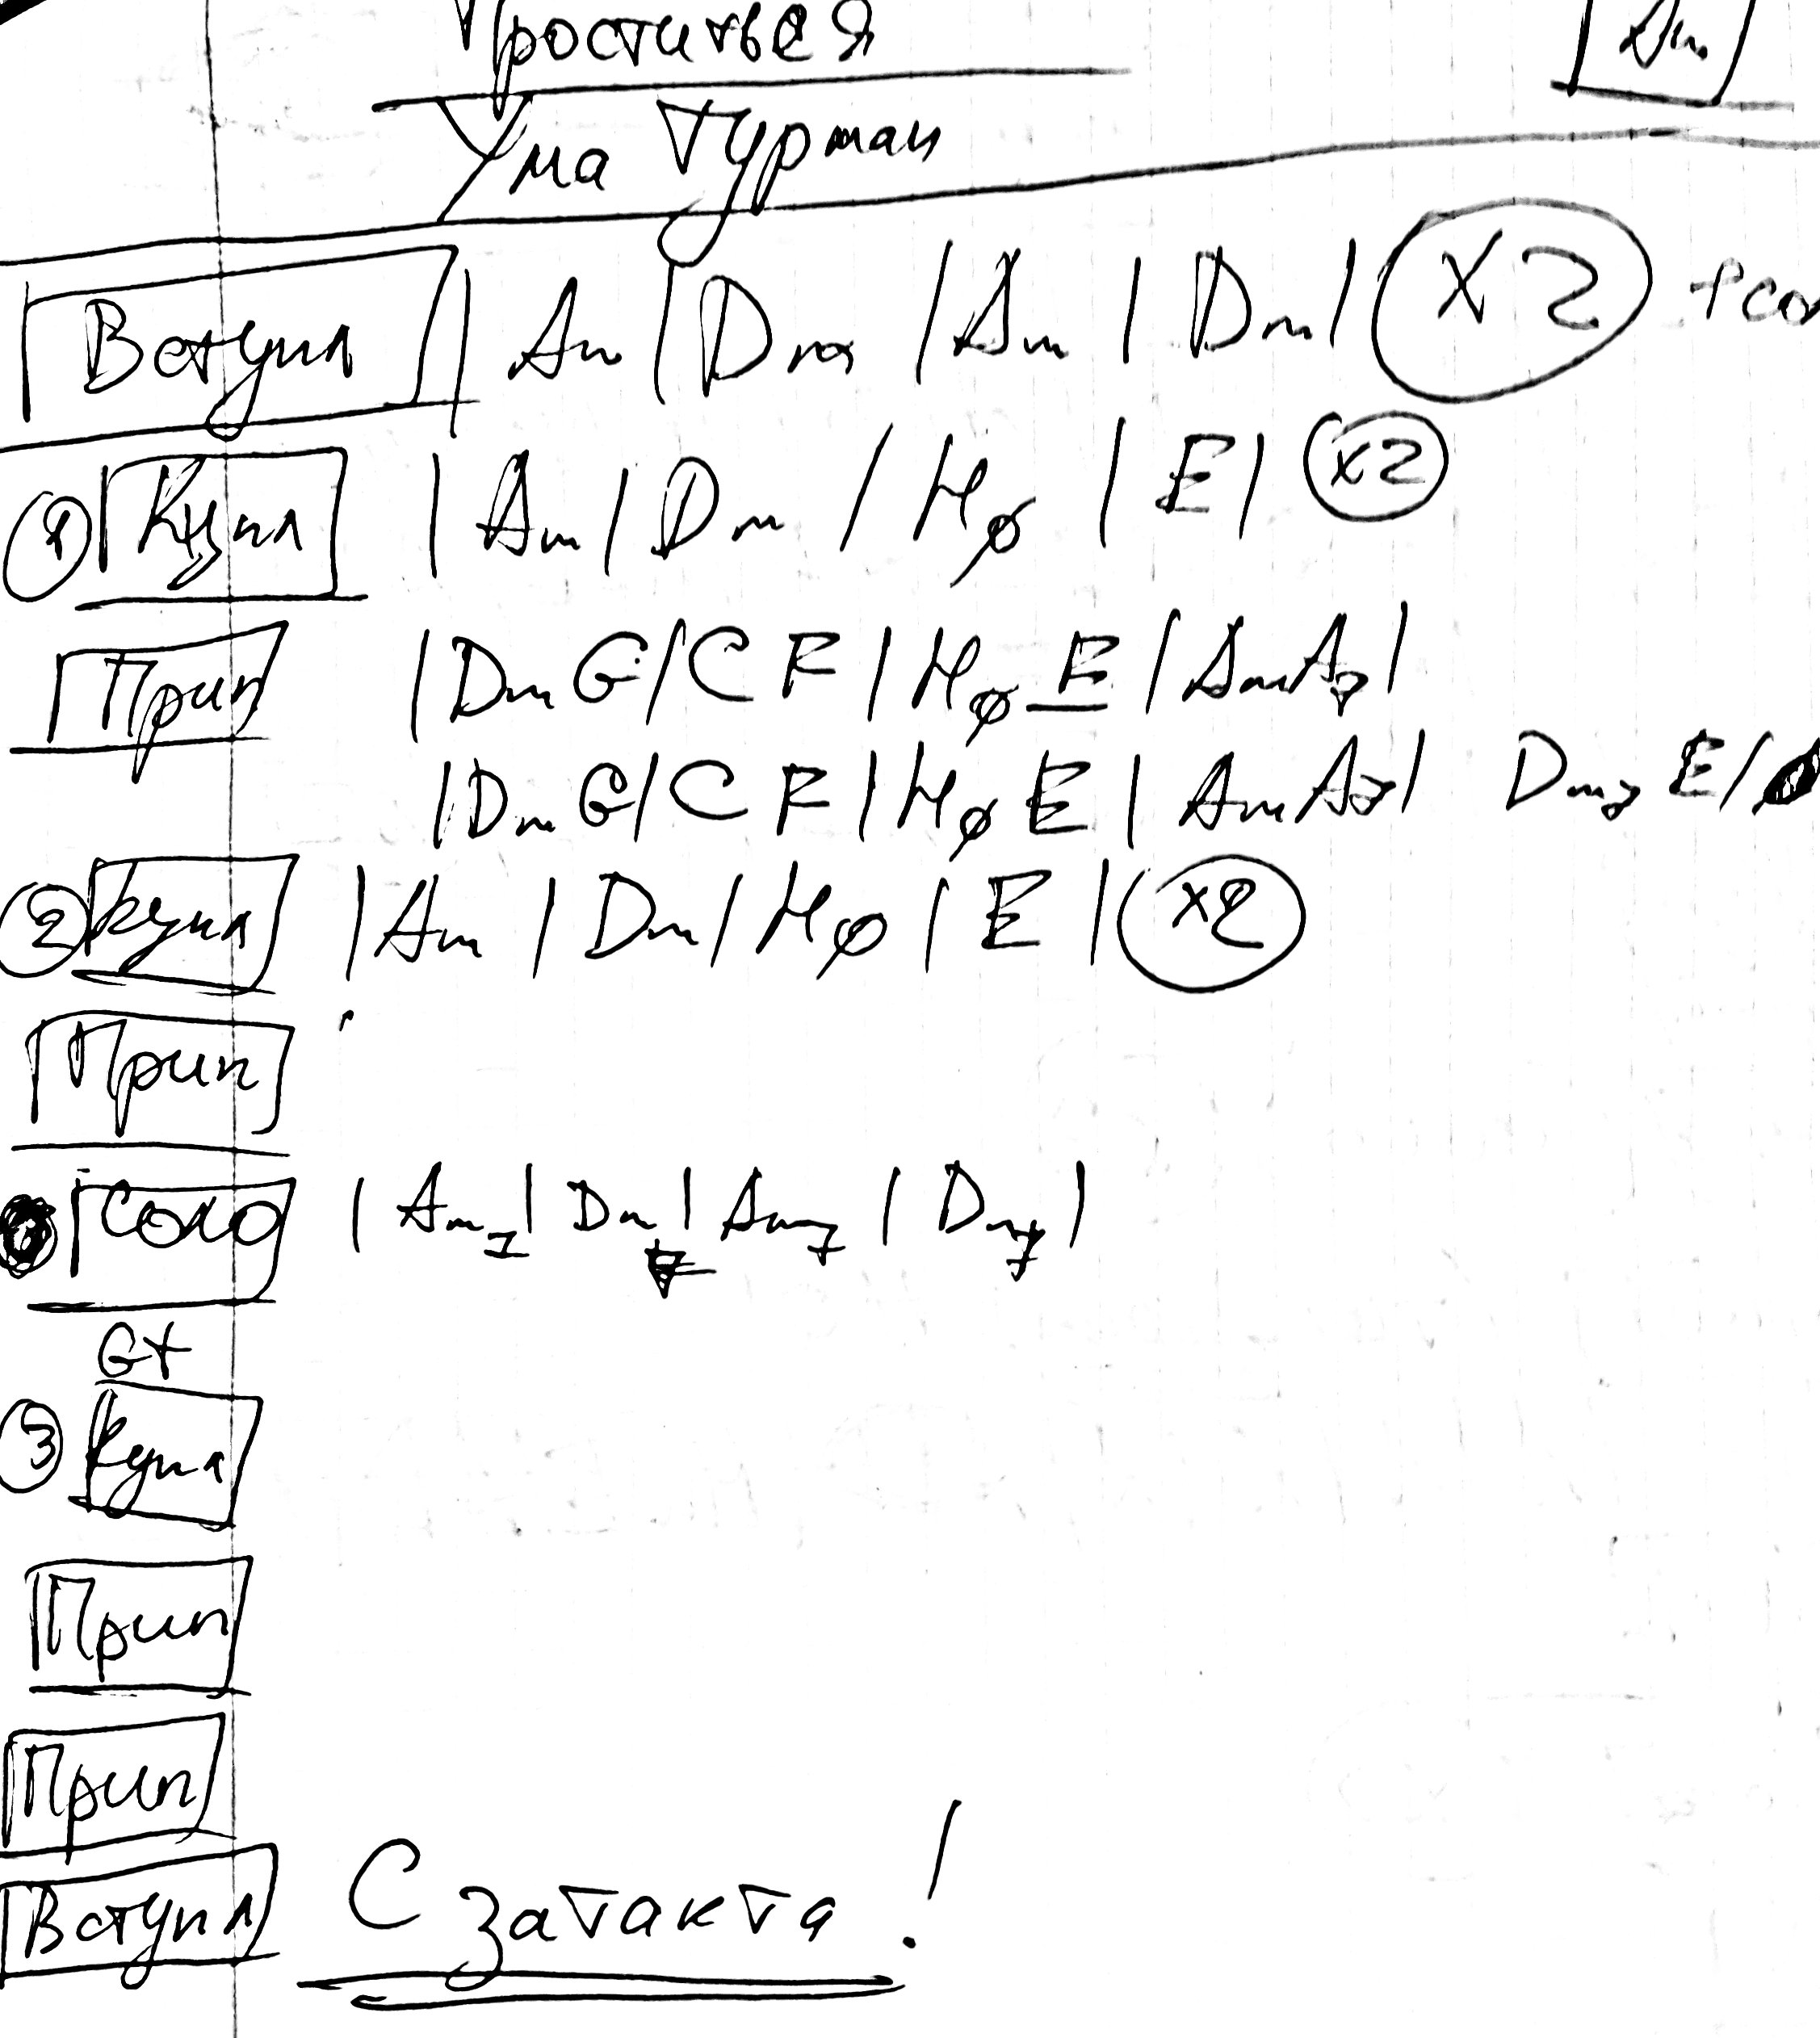 Проститься Am
Ума Турман
Вступл | Am | Dm | Am | Dm | x2 + со
1 Купл | Am | Dm | Hø | E | x2
Прип | Dm G | C F | Hø E | Am A7 |
| Dm G | C F | Hø E | Am A7 | Dm7 E |
2 Купл | Am | Dm | Hø | E | x2
Прип
Соло | Am7 | Dm7 | Am7 | Dm7 |
G+
3 Купл
Прип
Прип
Вступл С затакта!